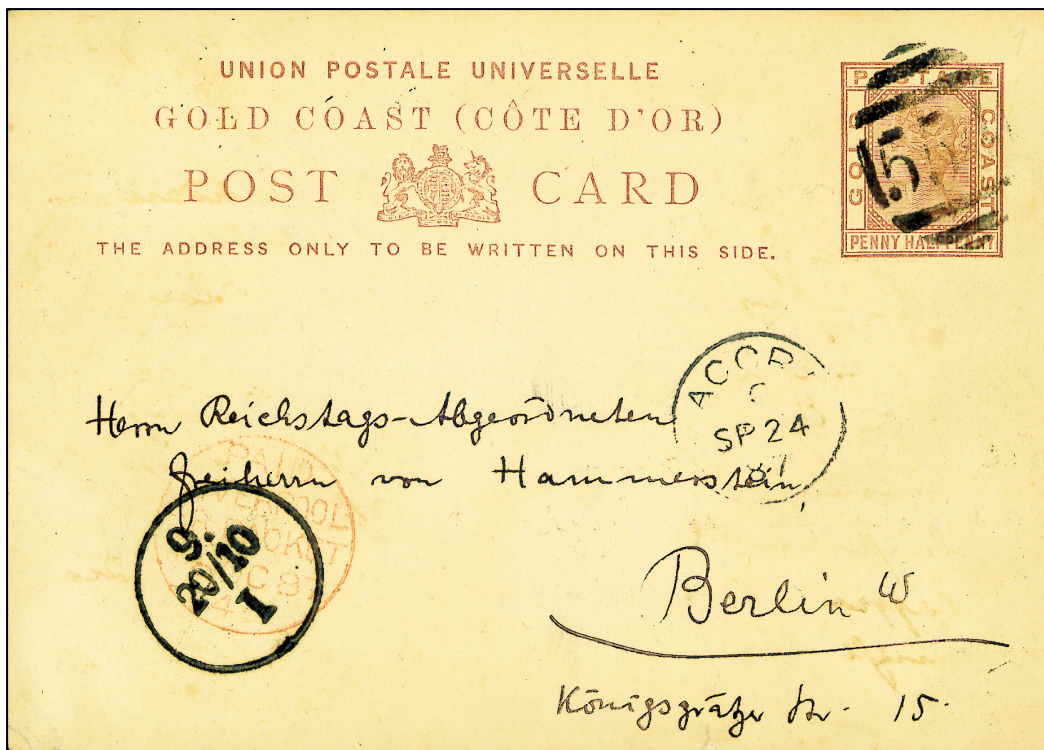 UNION POSTALE UNIVERSELLE
GOLD COAST (CÔTE D'OR)
POST CARD
THE ADDRESS ONLY TO BE WRITTEN ON THIS SIDE.
POSTAGE
GOLD
COAST
PENNY HALFPENNY
SP 24
Herrn Reichstags-Abgeordneten
Freiherrn von Hammerstein,
PAID
9.
20/10
I
Berlin W
Königsgrätzer Str. 15.